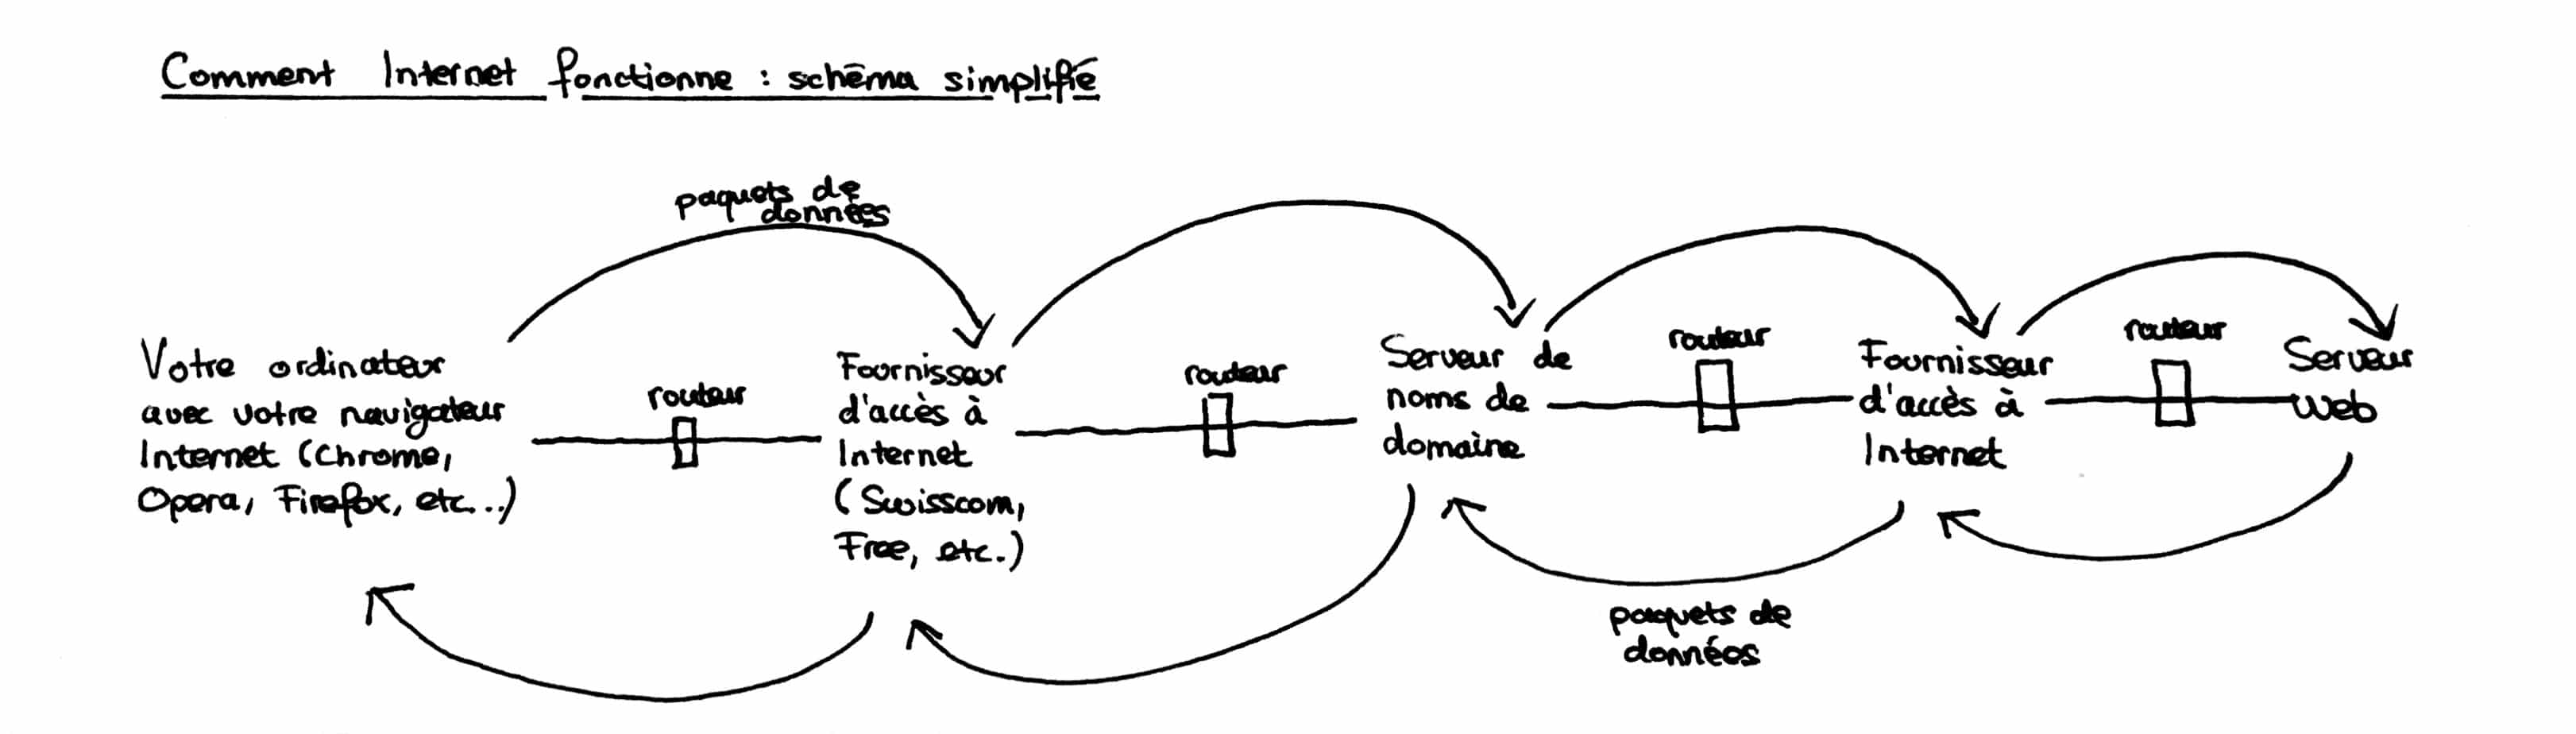 Comment Internet fonctionne : schéma simplifié
paquets de
données
Votre ordinateur
avec votre navigateur
Internet (Chrome,
Opera, Firefox, etc...)
routeur
Fournisseur
d'accès à
Internet
(Swisscom,
Free, etc.)
routeur
Serveur de
noms de
domaine
routeur
Fournisseur
d'accès à
Internet
routeur
Serveur
web
paquets de
données